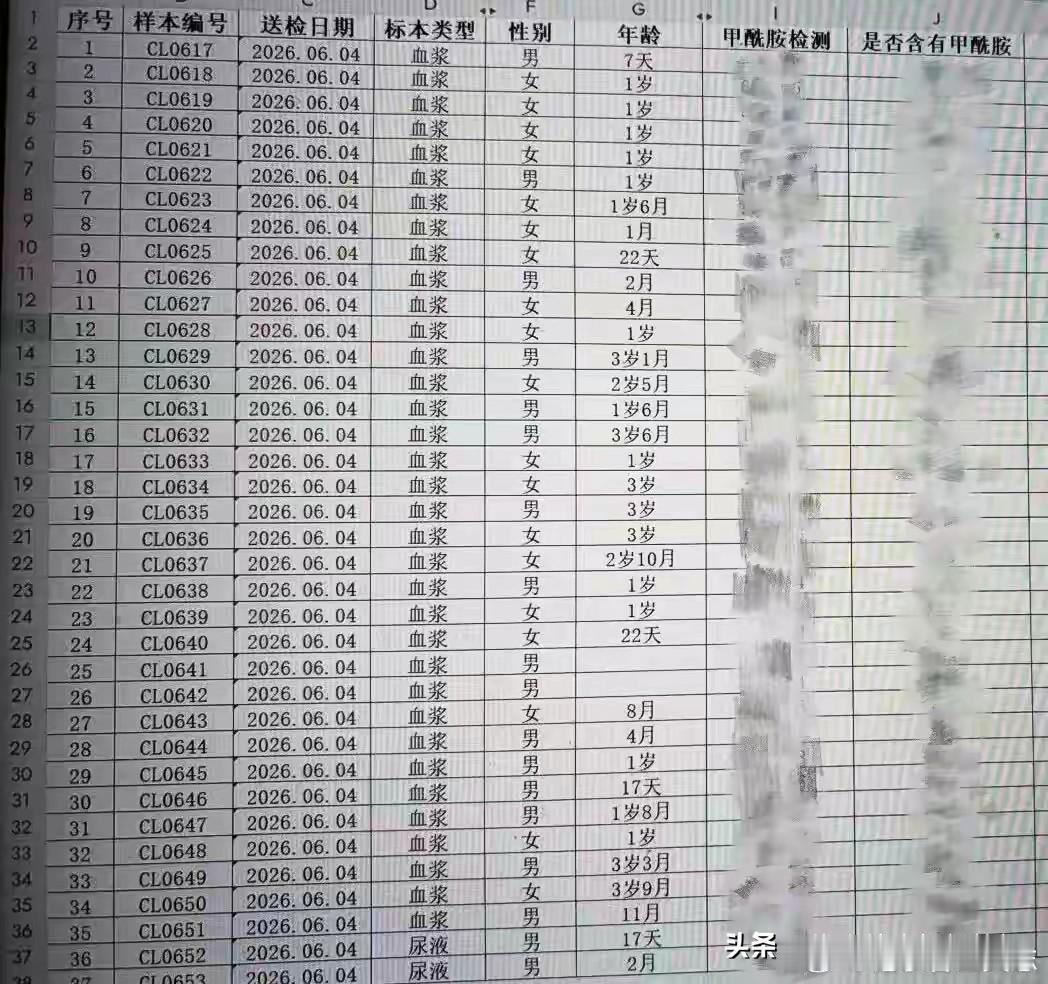 D F G I J
1 序号 样本编号 送检日期 标本类型 性别 年龄 甲酰胺检测 是否含有甲酰胺
2 1 CL0617 2026.06.04 血浆 男 7天
3 2 CL0618 2026.06.04 血浆 女 1岁
4 3 CL0619 2026.06.04 血浆 女 1岁
5 4 CL0620 2026.06.04 血浆 女 1岁
6 5 CL0621 2026.06.04 血浆 女 1岁
7 6 CL0622 2026.06.04 血浆 男 1岁
8 7 CL0623 2026.06.04 血浆 女 1岁6月
9 8 CL0624 2026.06.04 血浆 女 1月
10 9 CL0625 2026.06.04 血浆 女 22天
11 10 CL0626 2026.06.04 血浆 男 2月
12 11 CL0627 2026.06.04 血浆 女 4月
13 12 CL0628 2026.06.04 血浆 女 1岁
14 13 CL0629 2026.06.04 血浆 男 3岁1月
15 14 CL0630 2026.06.04 血浆 女 2岁5月
16 15 CL0631 2026.06.04 血浆 男 1岁6月
17 16 CL0632 2026.06.04 血浆 男 3岁6月
18 17 CL0633 2026.06.04 血浆 女 1岁
19 18 CL0634 2026.06.04 血浆 女 3岁
20 19 CL0635 2026.06.04 血浆 男 3岁
21 20 CL0636 2026.06.04 血浆 女 3岁
22 21 CL0637 2026.06.04 血浆 女 2岁10月
23 22 CL0638 2026.06.04 血浆 男 1岁
24 23 CL0639 2026.06.04 血浆 女 1岁
25 24 CL0640 2026.06.04 血浆 女 22天
26 25 CL0641 2026.06.04 血浆 男
27 26 CL0642 2026.06.04 血浆 男
28 27 CL0643 2026.06.04 血浆 女 8月
29 28 CL0644 2026.06.04 血浆 男 4月
30 29 CL0645 2026.06.04 血浆 男 1岁
31 30 CL0646 2026.06.04 血浆 男 17天
32 31 CL0647 2026.06.04 血浆 男 1岁8月
33 32 CL0648 2026.06.04 血浆 女 1岁
34 33 CL0649 2026.06.04 血浆 男 3岁3月
35 34 CL0650 2026.06.04 血浆 女 3岁9月
36 35 CL0651 2026.06.04 血浆 男 11月
37 36 CL0652 2026.06.04 尿液 男 17天
38 37 CL0653 2026.06.04 尿液 男 2月
头条